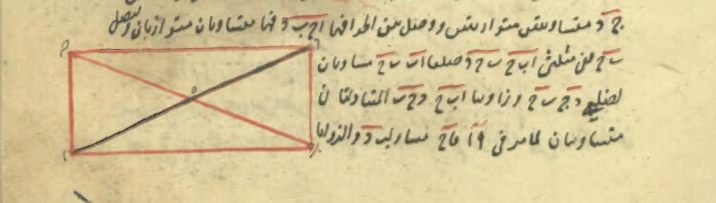 ج د متساويتين متوازيتين ووصل بين اطرافها ا ج ب د فهما متساويان متوازيان ونصل
ب ج ففى مثلثى ا ب ج ب ج د ضلعا ا ب ب ج مساويان
لضلعى د ج ب ج وزاويتا ا ب ج د ج ب المتبادلتان
متساويتان لما مر فى فا ج مساو لب د والزوايا